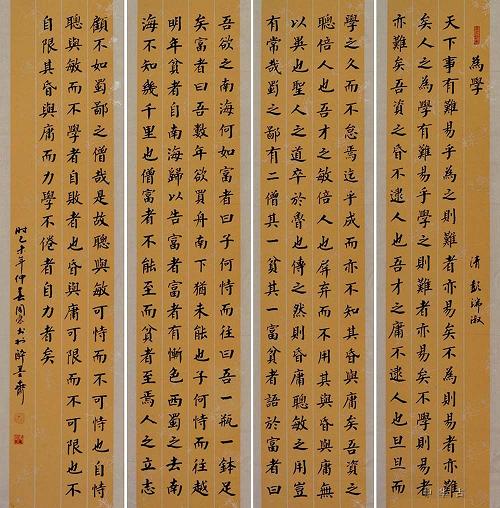 為學 清 彭端淑
天下事有難易乎為之則難者亦易矣不為則易者亦難
矣人之為學有難易乎學之則難者亦易矣不學則易者
亦難矣吾資之昏不逮人也吾才之庸不逮人也旦旦而
學之久而不怠焉迄乎成而亦不知其昏與庸矣吾資之
聰倍人也吾才之敏倍人也屏弃而不用其與昏與庸無
以異也聖人之道卒於魯也傳之然則昏庸聰敏之用豈
有常哉蜀之鄙有二僧其一貧其一富貧者語於富者曰
吾欲之南海何如富者曰子何恃而往曰吾一瓶一鉢足
矣富者曰吾數年欲買舟南下猶未能也子何恃而往越
明年貧者自南海歸以告富者富者有慚色西蜀之去南
海不知幾千里也僧富者不能至而貧者至焉人之立志
顧不如蜀鄙之僧哉是故聰與敏可恃而不可恃也自恃
聰與敏而不學者自敗者也昏與庸可限而不可限也不
自限其昏與庸而力學不倦者自力者矣
時乙年仲春周書於醉墨齋